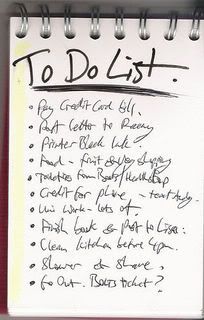 To Do List.
• Pay Credit Card bill.
• Post letter to
• Printer Black Ink.
• Food - fruit & veg shopping
• from Boots/Health Shop
• Credit for phone - text
• Uni work - lots of.
• Finish book & Post to Lissa.
• Clean kitchen before 4pm.
• Shower & Shave.
• Go Out. ticket?